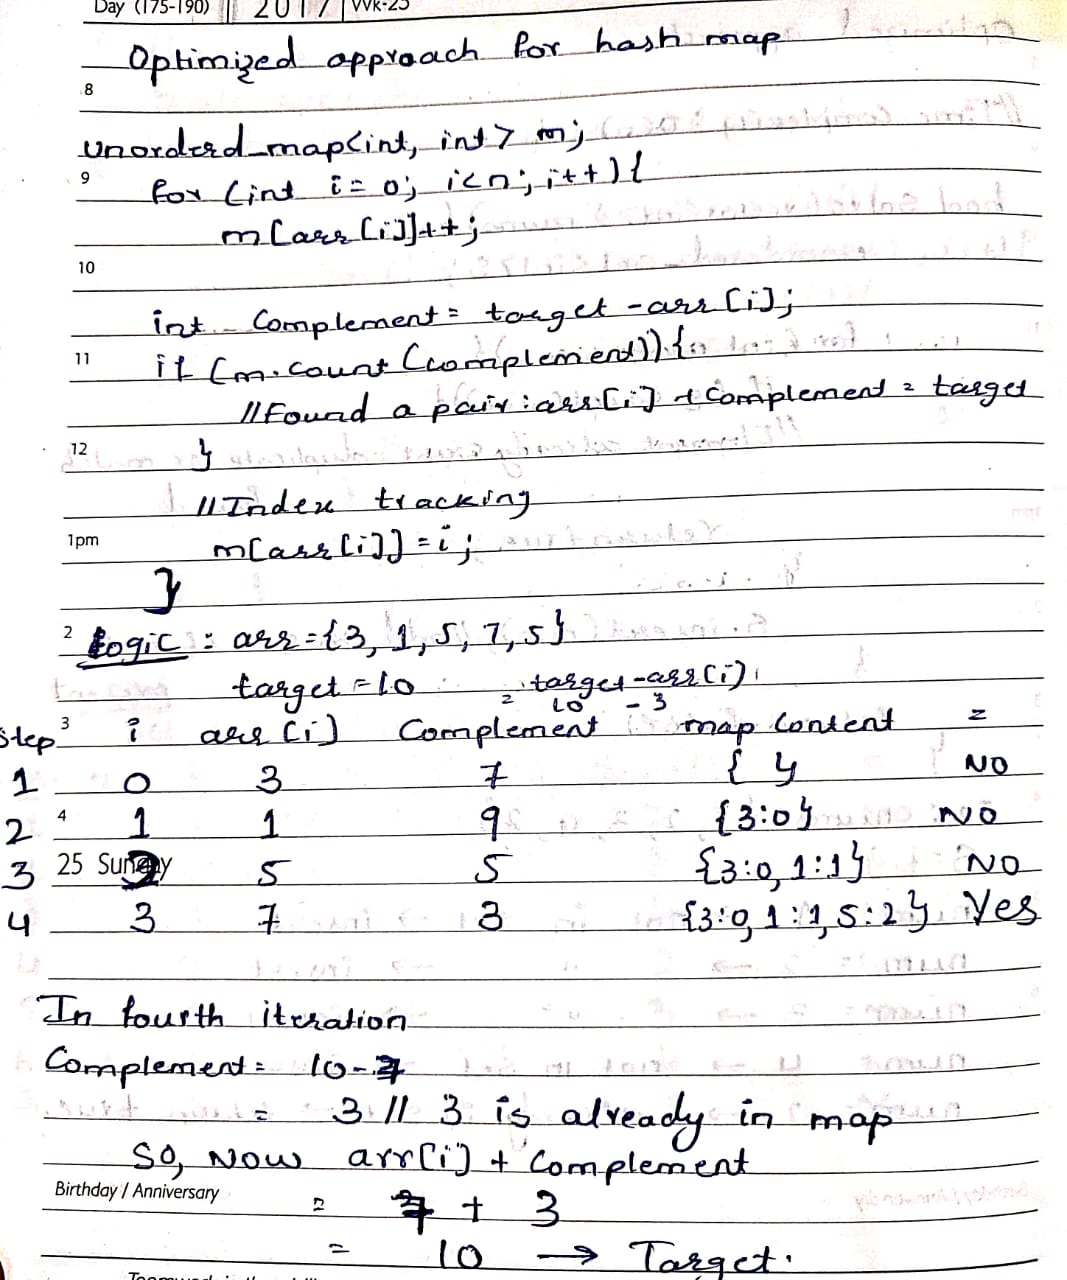 Day (175-190) 2017 Wk-25
Optimized approach for hash map
8
unorderd_map<int, int> m;
9
for (int i = 0; i<n; i++) {
m[arr[i]]++;
10
int Complement = target - arr[i];
11
if (m.count (complement)) {
//Found a pair : arr[i] + Complement = target
12
}
//Index tracking
1pm
m[arr[i]] = i;
}
2
Logic : arr = {3, 1, 5, 7, 5}
target = 10 = target - arr(i)
10 - 3
3
Step i arr [i] Complement map content =
1 0 3 7 { } NO
4
2 1 1 9 {3:0} NO
25 Sunday
3 2 5 5 {3:0, 1:1} NO
4 3 7 3 {3:0, 1:1, 5:2} Yes
In fourth iteration
Complement = 10-7
= 3 // 3 is already in map
So, Now arr[i] + Complement
Birthday / Anniversary
= 7 + 3
= 10 → Target.